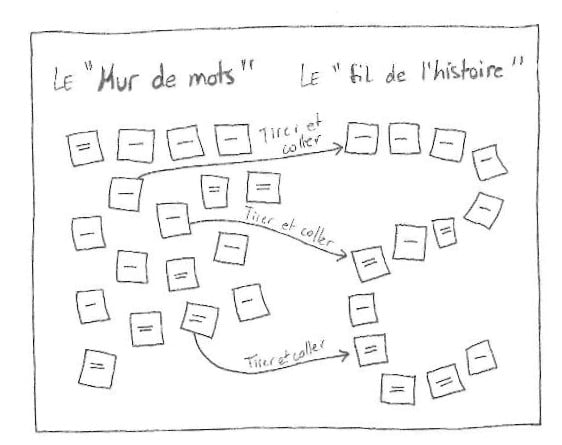 LE "Mur de mots"
LE "fil de l'histoire"
Tirer et
coller
Tirer et coller
Tirer et coller